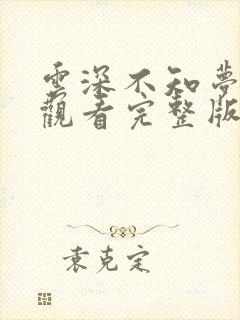 雲深不知夢
觀看完整版
袁克定